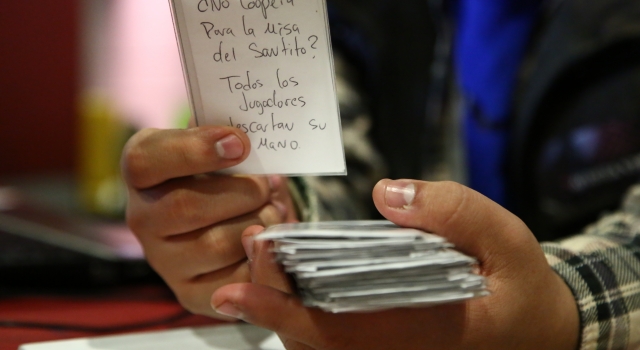 ¿No Coopera
Para la Misa
del Santito?
Todos los
Jugadores
descartan su
Mano